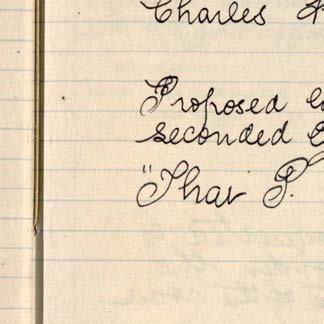 Charles
Proposed
seconded
"That P.